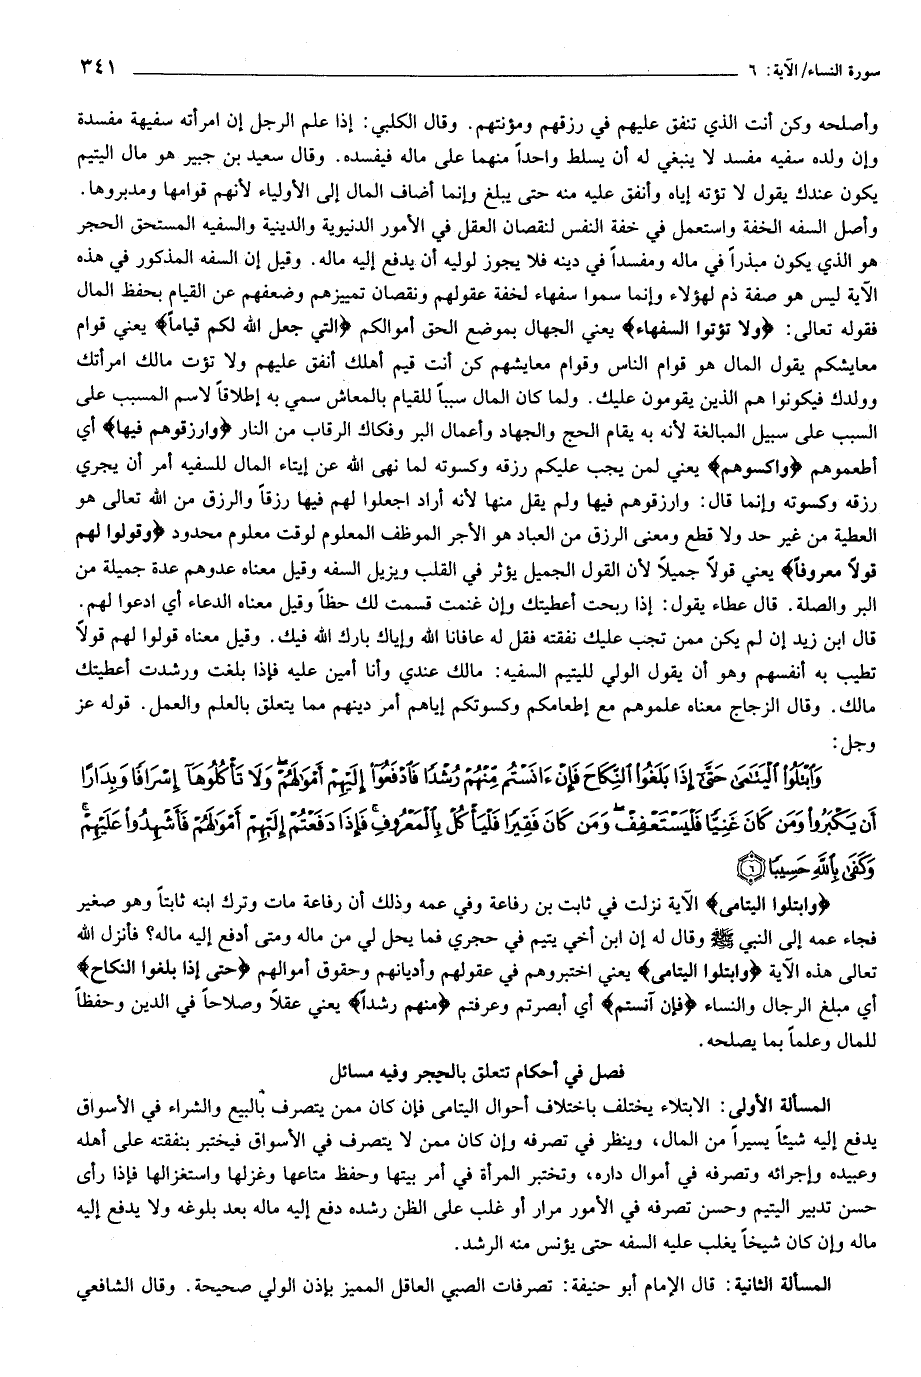 سورة النساء/ الآية: ٦ ٣٤١
وأصلحه وكن أنت الذي تنفق عليهم في رزقهم ومؤنتهم. وقال الكلبي: إذا علم الرجل إن امرأته سفيهة مفسدة
وإن ولده سفيه مفسد لا ينبغي له أن يسلط واحداً منهما على ماله فيفسده. وقال سعيد بن جبير هو مال اليتيم
يكون عندك يقول لا تؤته إياه وأنفق عليه منه حتى يبلغ وإنما أضاف المال إلى الأولياء لأنهم قوامها ومدبروها.
وأصل السفه الخفة واستعمل في خفة النفس لنقصان العقل في الأمور الدنيوية والدينية والسفيه المستحق الحجر
هو الذي يكون مبذراً في ماله ومفسداً في دينه فلا يجوز لوليه أن يدفع إليه ماله. وقيل إن السفه المذكور في هذه
الآية ليس هو صفة ذم لهؤلاء وإنما سموا سفهاء لخفة عقولهم ونقصان تمييزهم وضعفهم عن القيام بحفظ المال
فقوله تعالى: ﴿ولا تؤتوا السفهاء﴾ يعني الجهال بموضع الحق أموالكم ﴿التي جعل الله لكم قياماً﴾ يعني قوام
معايشكم يقول المال هو قوام الناس وقوام معايشهم كن أنت قيم أهلك أنفق عليهم ولا تؤت مالك امرأتك
وولدك فيكونوا هم الذين يقومون عليك. ولما كان المال سبباً للقيام بالمعاش سمي به إطلاقاً لاسم المسبب على
السبب على سبيل المبالغة لأنه به يقام الحج والجهاد وأعمال البر وفكاك الرقاب من النار ﴿وارزقوهم فيها﴾ أي
أطعموهم ﴿واكسوهم﴾ يعني لمن يجب عليكم رزقه وكسوته لما نهى الله عن إيتاء المال للسفيه أمر أن يجري
رزقه وكسوته وإنما قال: وارزقوهم فيها ولم يقل منها لأنه أراد اجعلوا لهم فيها رزقاً والرزق من الله تعالى هو
العطية من غير حد ولا قطع ومعنى الرزق من العباد هو الأجر الموظف المعلوم لوقت معلوم محدود ﴿وقولوا لهم
قولاً معروفاً﴾ يعني قولاً جميلاً لأن القول الجميل يؤثر في القلب ويزيل السفه وقيل معناه عدوهم عدة جميلة من
البر والصلة. قال عطاء يقول: إذا ربحت أعطيتك وإن غنمت قسمت لك حظاً وقيل معناه الدعاء أي ادعوا لهم.
قال ابن زيد إن لم يكن ممن تجب عليك نفقته فقل له عافانا الله وإياك بارك الله فيك. وقيل معناه قولوا لهم قولاً
تطيب به أنفسهم وهو أن يقول الولي لليتيم السفيه: مالك عندي وأنا أمين عليه فإذا بلغت ورشدت أعطيتك
مالك. وقال الزجاج معناه علموهم مع إطعامكم وكسوتكم إياهم أمر دينهم مما يتعلق بالعلم والعمل. قوله عز
وجل:
وَابْتَلُوا الْيَتَامَى حَتَّى إِذَا بَلَغُوا النِّكَاحَ فَإِنْ ءَانَسْتُم مِّنْهُمْ رُشْدًا فَادْفَعُوا إِلَيْهِمْ أَمْوَالَهُمْ وَلَا تَأْكُلُوهَا إِسْرَافًا وَبِدَارًا
أَن يَكْبَرُوا وَمَن كَانَ غَنِيًّا فَلْيَسْتَعْفِفْ وَمَن كَانَ فَقِيرًا فَلْيَأْكُلْ بِالْمَعْرُوفِ فَإِذَا دَفَعْتُمْ إِلَيْهِمْ أَمْوَالَهُمْ فَأَشْهِدُوا عَلَيْهِمْ
وَكَفَى بِاللَّهِ حَسِيبًا ﴿٦﴾
﴿وابتلوا اليتامى﴾ الآية نزلت في ثابت بن رفاعة وفي عمه وذلك أن رفاعة مات وترك ابنه ثابتاً وهو صغير
فجاء عمه إلى النبي ﷺ وقال له إن ابن أخي يتيم في حجري فما يحل لي من ماله ومتى أدفع إليه ماله؟ فأنزل الله
تعالى هذه الآية ﴿وابتلوا اليتامى﴾ يعني اختبروهم في عقولهم وأديانهم وحقوق أموالهم ﴿حتى إذا بلغوا النكاح﴾
أي مبلغ الرجال والنساء ﴿فإن آنستم﴾ أي أبصرتم وعرفتم ﴿منهم رشداً﴾ يعني عقلاً وصلاحاً في الدين وحفظاً
للمال وعلماً بما يصلحه.
فصل في أحكام تتعلق بالحجر وفيه مسائل
المسألة الأولى: الابتلاء يختلف باختلاف أحوال اليتامى فإن كان ممن يتصرف بالبيع والشراء في الأسواق
يدفع إليه شيئاً يسيراً من المال، وينظر في تصرفه وإن كان ممن لا يتصرف في الأسواق فيختبر بنفقته على أهله
وعبيده وإجرائه وتصرفه في أموال داره، وتختبر المرأة في أمر بيتها وحفظ متاعها وغزلها واستغزالها فإذا رأى
حسن تدبير اليتيم وحسن تصرفه في الأمور مرار أو غلب على الظن رشده دفع إليه ماله بعد بلوغه ولا يدفع إليه
ماله وإن كان شيخاً يغلب عليه السفه حتى يؤنس منه الرشد.
المسألة الثانية: قال الإمام أبو حنيفة: تصرفات الصبي العاقل المميز بإذن الولي صحيحة. وقال الشافعي